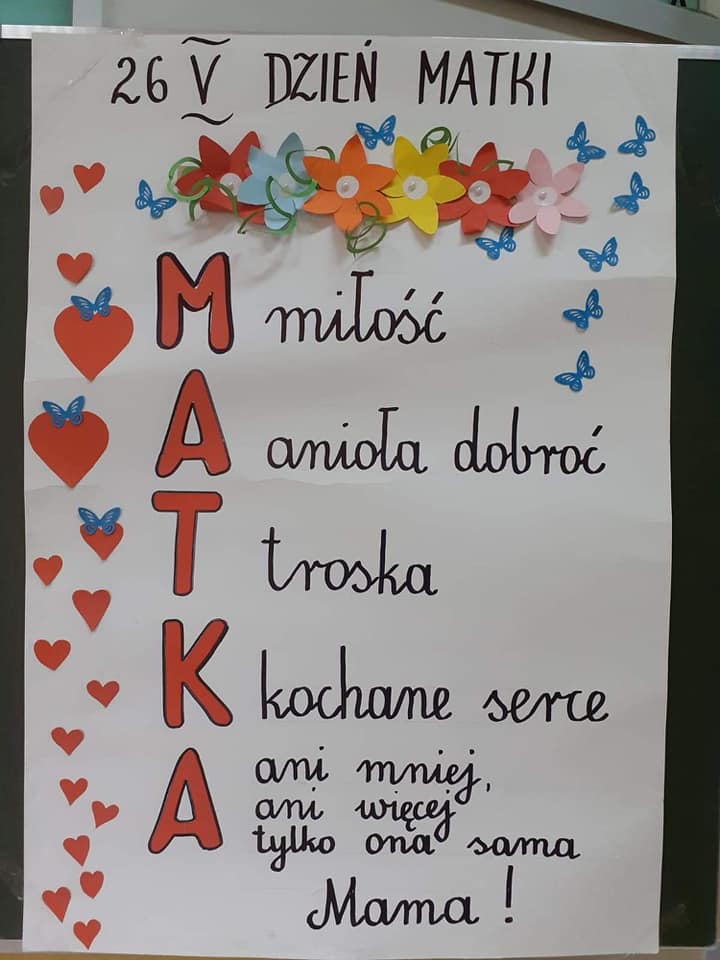 26 V DZIEŃ MATKI
M miłość
A anioła dobroć
T troska
K kochane serce
A ani mniej,
ani więcej
tylko ona sama
Mama !